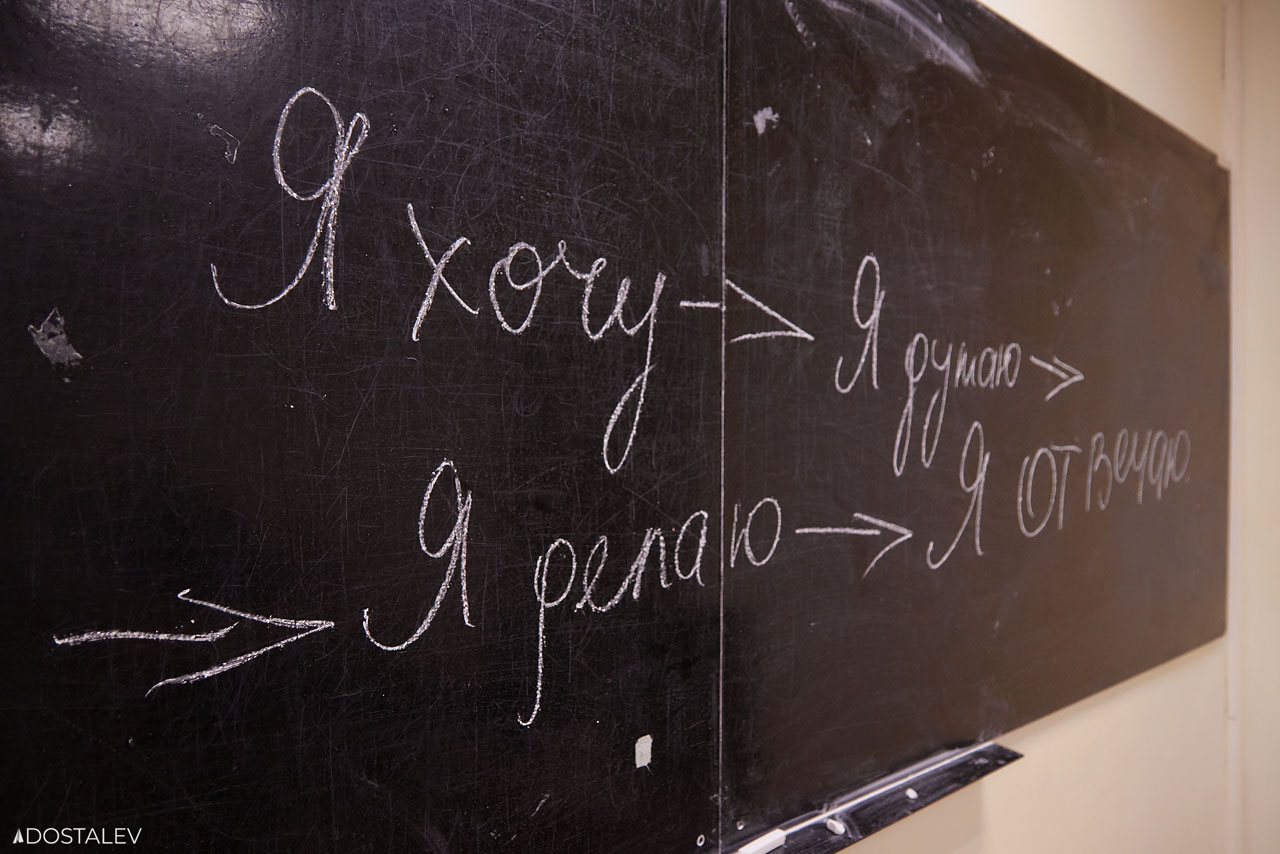 Я хочу → Я думаю →
→ Я делаю → Я отвечаю
ADOSTALEV